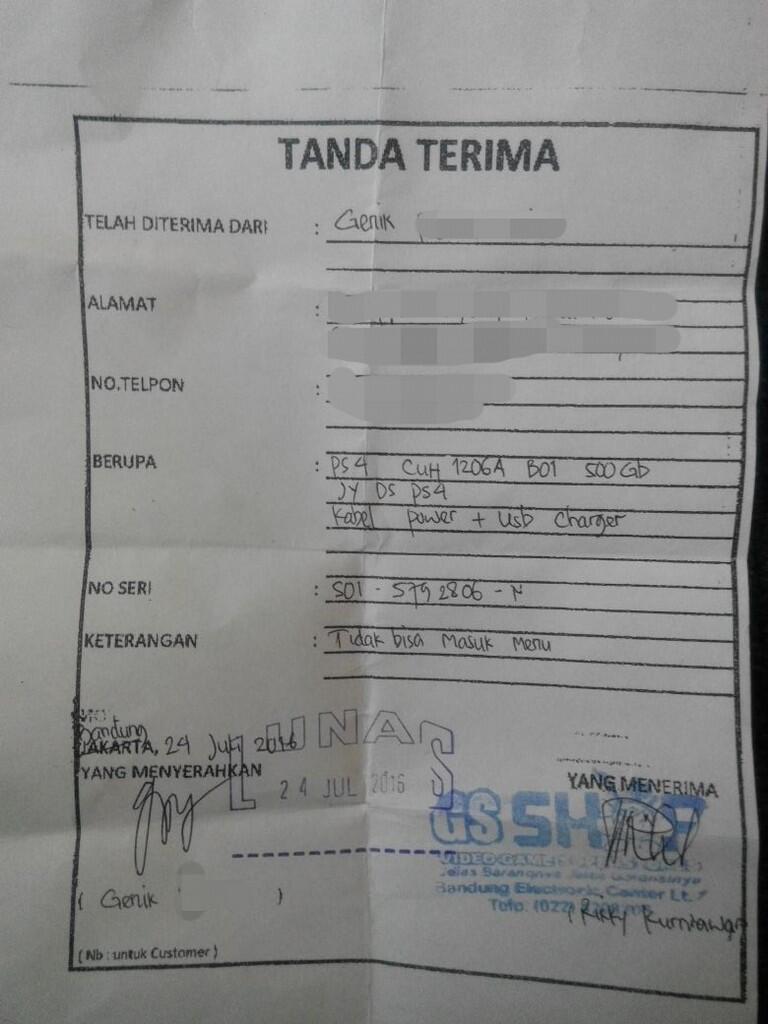 TANDA TERIMA
TELAH DITERIMA DARI : Genik
ALAMAT :
NO.TELPON :
BERUPA : PS4 CUH 1206A B01 500Gb
JY DS PS4
Kabel power + Usb Charger
NO SERI : S01 - 5792806 - N
KETERANGAN : Tidak bisa masuk menu
Bandung
JAKARTA, 24 Juli 2016
LUNAS
YANG MENYERAHKAN
24 JUL 2016
YANG MENERIMA
GS SHOP
VIDEO GAME
Jelas Barangnya Jelas Garansinya
Bandung Electronic Center Lt.
Telp. (022)
( Genik )
( Rikky Kurniawan
( Nb : untuk Customer )